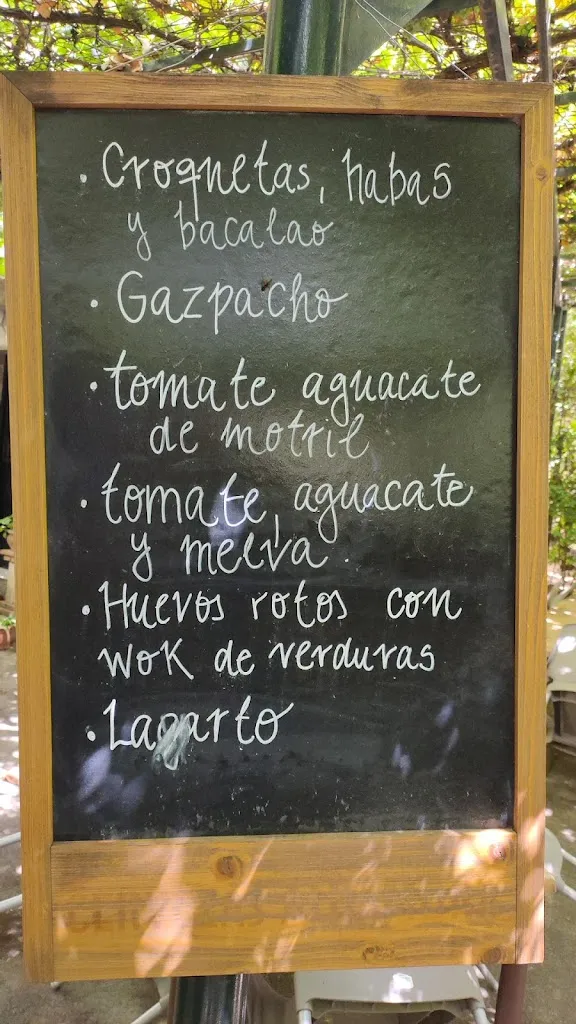 . Croquetas, habas
y bacalao
. Gazpacho
. tomate aguacate
de motril
. tomate, aguacate
y melva
. Huevos rotos con
wok de verduras
. Lagarto